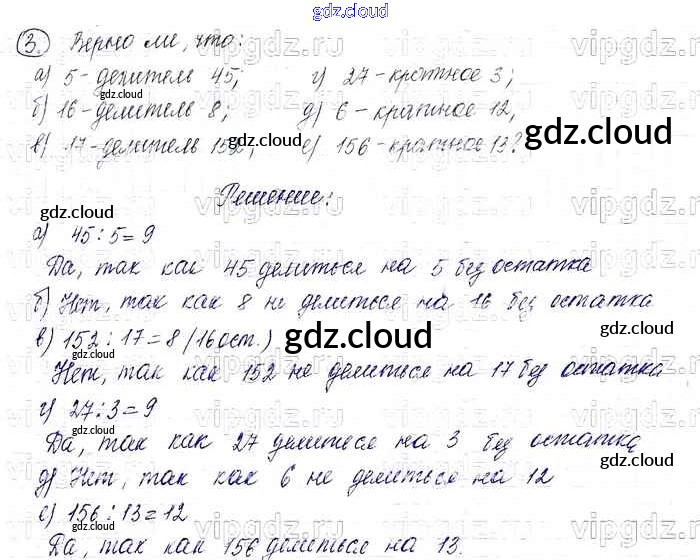 gdz.cloud
3. Верно ли, что:
а) 5 - делитель 45; г) 27 - кратное 3;
б) 16 - делитель 8; д) 6 - кратное 12,
в) 17 - делитель 152; е) 156 - кратное 13?
gdz.cloud
gdz.cloud
Решение:
gdz.cloud
а) 45 : 5 = 9
Да, так как 45 делиться на 5 без остатка
б) Нет, так как 8 не делиться на 16 без остатка
в) 152 : 17 = 8 (16 ост.)
gdz.cloud
gdz.cloud
Нет, так как 152 не делиться на 17 без остатка
г) 27 : 3 = 9
gdz.cloud
Да, так как 27 делиться на 3 без остатка
gdz.cloud
д) Нет, так как 6 не делиться на 12
е) 156 : 13 = 12
gdz.cloud
Да, так как 156 делиться на 13.